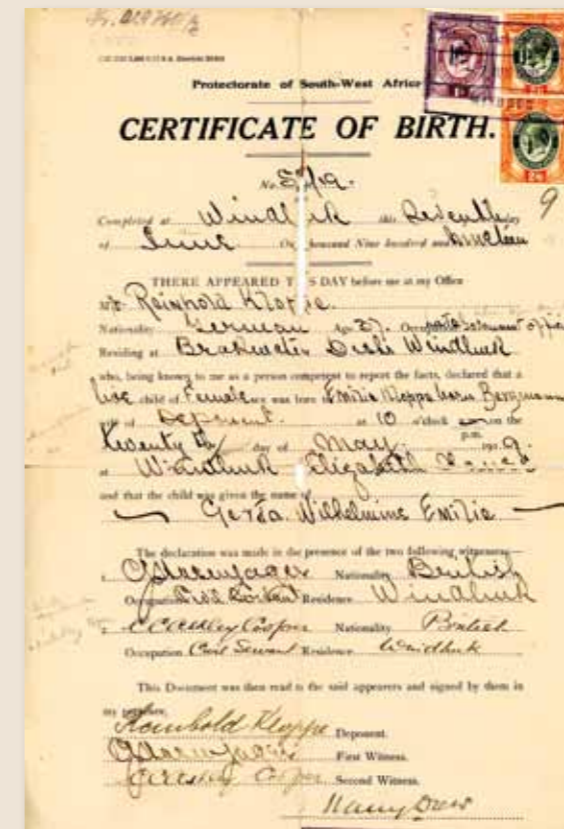 Protectorate of South-West Africa
CERTIFICATE OF BIRTH.
No. 57/19.
Completed at Windhuk this Seventh day
of June One thousand Nine hundred and nineteen
THERE APPEARED THIS DAY before me at my Office
Reinhold Kloppe
Nationality German Age 37. Occupation
Residing at Brakwater Distr Windhuk
who, being known to me as a person competent to report the facts, declared that a
live child of Female sex was born to Emilie Kloppe born Bergmann
wife of Deponent. at 10 o'clock on the
p.m.
twentyth day of May 1919.
at Windhuk Elizabeth
and that the child was given the name of
Gerda Wilhelmine Emilie
The declaration was made in the presence of the two following witnesses
1. Nationality British
Occupation Civil Servant Residence Windhuk
2. Cooper Nationality British
Occupation Civil Servant Residence Windhuk
This Document was then read to the said appearers and signed by them in
my presence.
Reinhold Kloppe Deponent.
First Witness.
Cooper Second Witness.
Harry Drew